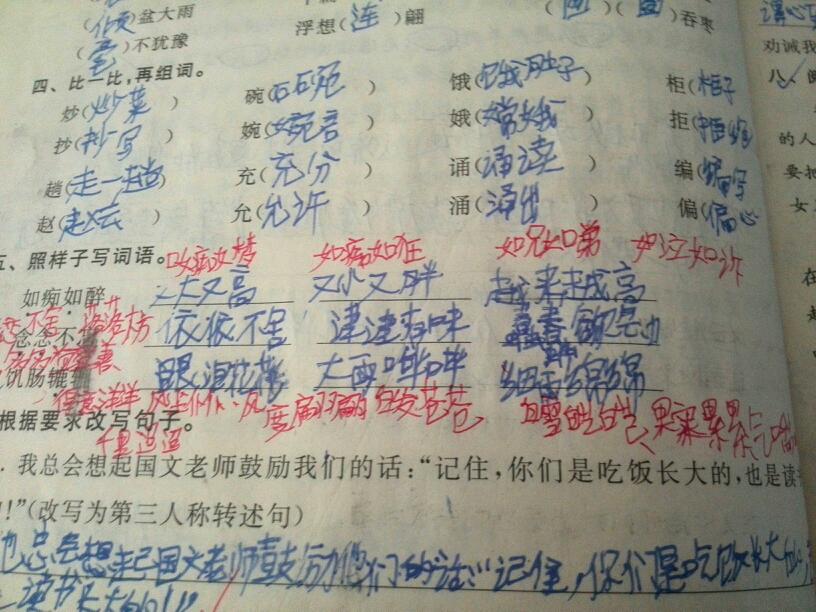 (倾)盆大雨
浮想(连)翩
吞枣
(毫)不犹豫
劝诫我
四、比一比,再组词。
炒(炒菜) 碗(石碗) 饿(饿肚子) 柜(柜子)
抄(抄写) 婉(婉言) 娥(嫦娥) 拒(拒绝)
趟(走一趟) 充(充分) 诵(诵读) 编(编写)
赵(赵云) 允(允许) 涌(涌出) 偏(偏心)
五、照样子写词语。 如痴如梦 如痴如狂 如兄如弟 如泣如诉
如痴如醉 又大又高 又小又胖 越来越高
念念不 依依不舍 津津有味
饥肠辘辘 眼泪花花 大雨哗哗 细雨绵绵
得意洋洋 风度翩翩 白发苍苍 白雪皑皑 果实累累
根据要求改写句子。
千里迢迢
我总会想起国文老师鼓励我们的话:“记住,你们是吃饭长大的,也是读
!”(改写为第三人称转述句)
他总会想起国文老师鼓励他们的话:“记住,你们是吃饭长大的
读书长大的!”